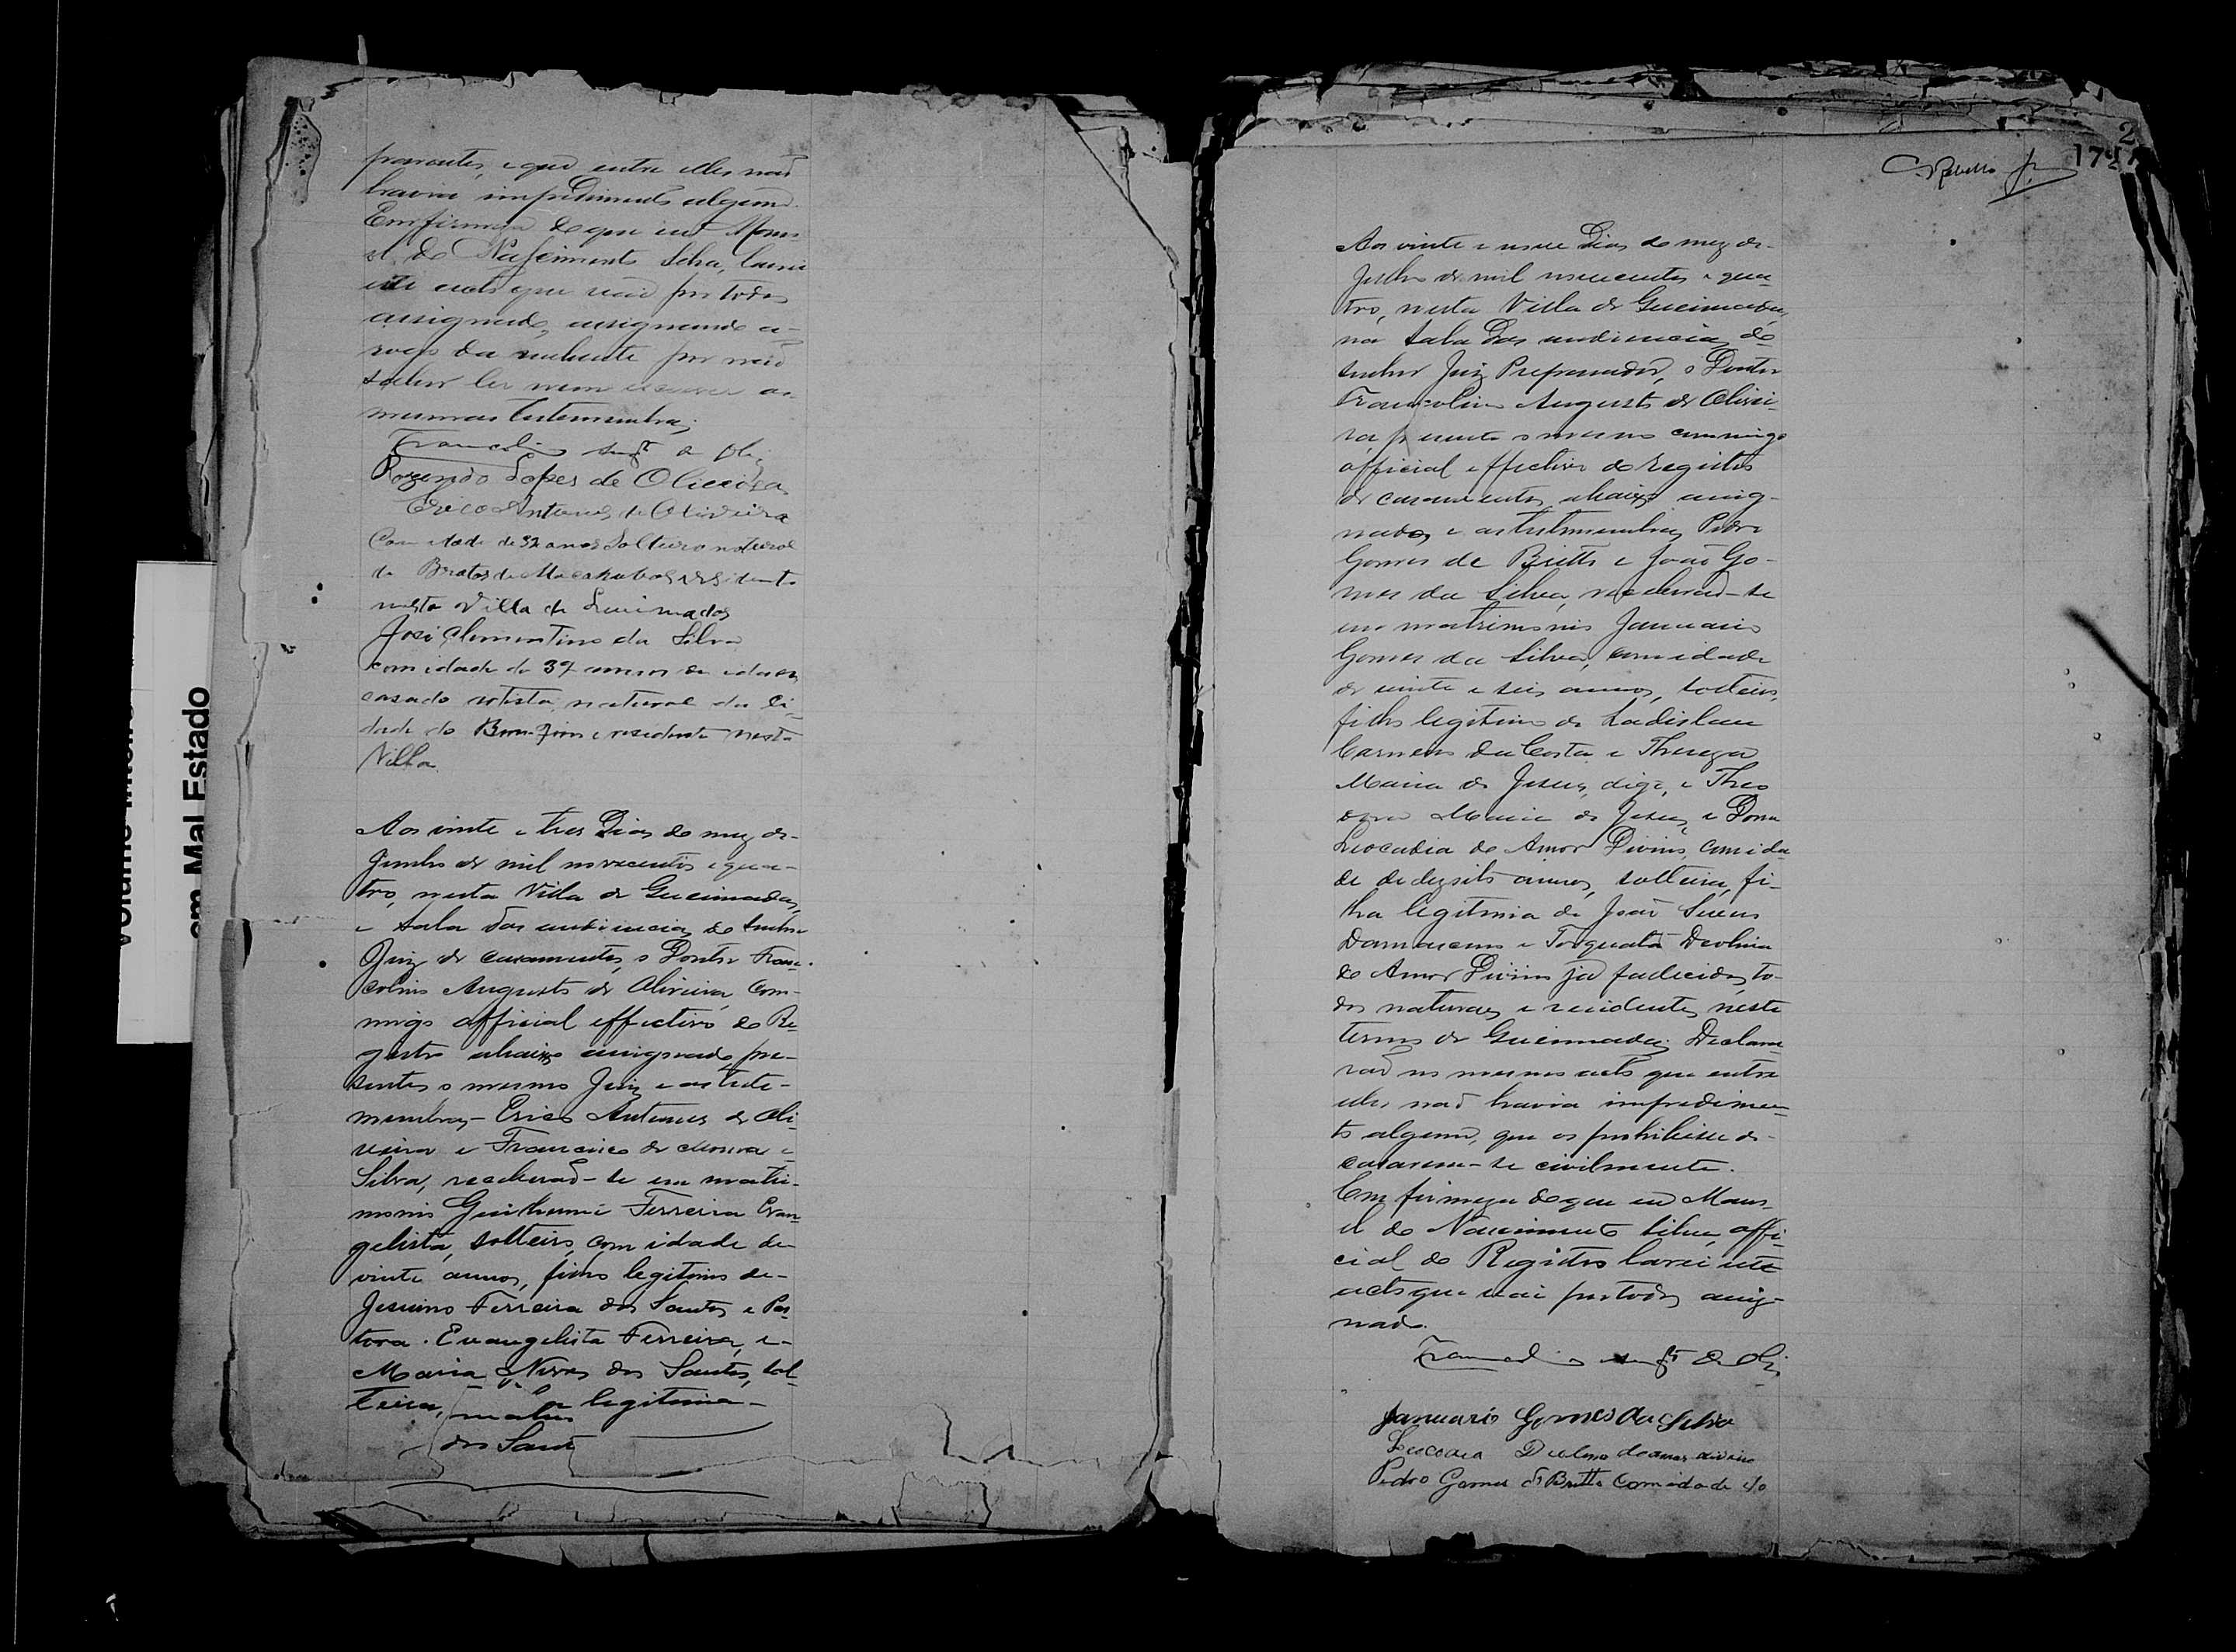 parentes, e que entre elles não
havia impedimento algum.
Em firmeza do que eu Mano-
el do Nascimento Silva, lavrei
este acto que vai por todos
assignado, assignando a-
rogo da nubente por não
saber ler nem escrever as
mesmas testemunhas.
Francolino Augt de Oli
Rozendo Lopes de Oliveira
Erico Antunes de Oliveira
Com idade de 32 anos Solteiro natural
de Brotos de Macahubas residente
nesta Villa de Queimados
José Clementino da Silva
com idade de 37 annos de idade
casado artista natural da Ci-
dade do Bom-fim e residente nesta
Villa.
Aos vinte e tres Dias do mez de-
Junho de mil novecentos e qua-
tro, nesta Villa de Queimadas,
e Sala das audiencias do Senhor
Juiz de casamentos, o Doutor Fran-
colino Augusto de Oliveira, com-
migo official effectivo do Re-
gistro abaixo assignado, pre-
sentes o mesmo Juiz e as teste-
munhas - Erico Antunes de Oli-
veira e Francisco de Moura e
Silva, receberão-se em matri-
monio Guilherme Ferreira Evan-
gelista, solteiro, com idade de
vinte annos, filho legitimo de-
Jesuino Ferreira dos Santos e Pas-
tora Evangelista Ferreira, e-
Maria Neves dos Santos, sol-
teira, legitima-
dos Sant
2
174
Rebello Jr
Aos vinte e nove Dias do mez de-
Julho de mil novecentos e qua-
tro, nesta Villa de Queimadas,
na Sala das audiencias do
Senhor Juiz Preparador, o Doutor
Francolino Augusto de Olivei-
ra presente o mesmo commigo
official effectivo do registro
de casamentos, abaixo assig-
nado, e as testemunhas, Pedro
Gomes de Britto e João Go-
mes da Silva, receberão-se
em matrimonio Januario
Gomes da Silva, com idade
de vinte e seis annos, solteiro,
filho legitimo de Ladislau
Carneiro da Costa e Thereza
Maria de Jesus, digo, e Theo
dora Maria de Jesus, e Dona
Leocadia do Amor Divino, com ida-
de de dezoito annos, solteira, fi-
lha legitima de João
Damasceno e Torquata Deolina
do Amor Divino já fallecidos, to-
dos naturaes e residentes neste
termo de Queimadas. Declara-
rão no mesmo acto que entre
elles não havia impedimen-
to algum, que os prohibisse de-
casarem-se civilmente.
Em firmeza do que eu Mano-
el do Nascimento Silva, offi-
cial do Registro lavrei este
acto que vai por todos assig-
nado.
Francolino Augt de Oli
Januario Gomes da Silva
Leocadia do amor divino
Pedro Gomes de Britto com idade de
Volume
em Mal Estado